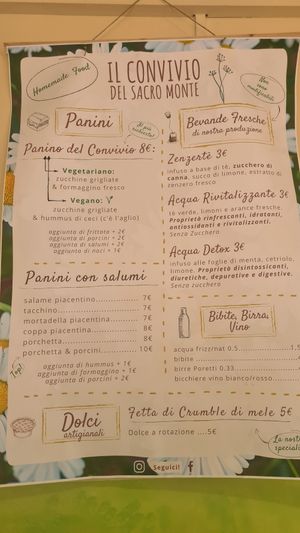 Homemade Food
IL CONVIVIO
DEL SACRO MONTE
Non sono modificabili
Panini
Panino del Convivio 8€:
Vegetariano:
zucchine grigliate
& formaggino fresco
Vegano:
zucchine grigliate
& hummus di ceci (c'è l'aglio)
aggiunta di frittata + 2€
aggiunta di porcini + 2€
aggiunta di salumi + 2€
aggiunta di noci + 1€
Panini con salumi
salame piacentino 7€
tacchino 7€
mortadella piacentina 7€
coppa piacentina 8€
porchetta 8€
porchetta & porcini 10€
Top!
aggiunta di hummus + 1€
aggiunta di formaggino + 1€
aggiunta di porcini + 2€
Bevande Fresche
di nostra produzione
Zenzerte 3€
infuso a base di tè, zucchero di
canna, succo di limone, estratto di
zenzero fresco
Acqua Rivitalizzante 3€
tè verde, limoni e arance fresche.
Proprietà rinfrescanti, idratanti,
antiossidanti e rivitalizzanti.
Senza Zucchero
Acqua Detox 3€
infuso alle foglie di menta, cetriolo,
limone. Proprietà disintossicanti,
diuretiche, depurative e digestive.
Senza zucchero
Bibite, Birra,
Vino
acqua frizz/nat 0.5 1,5
bibite
birre Poretti 0.33
bicchiere vino bianco/rosso
Dolci
artigianali
Fetta di Crumble di mele 5€
Dolce a rotazione ....5€
La nostra
Seguici!